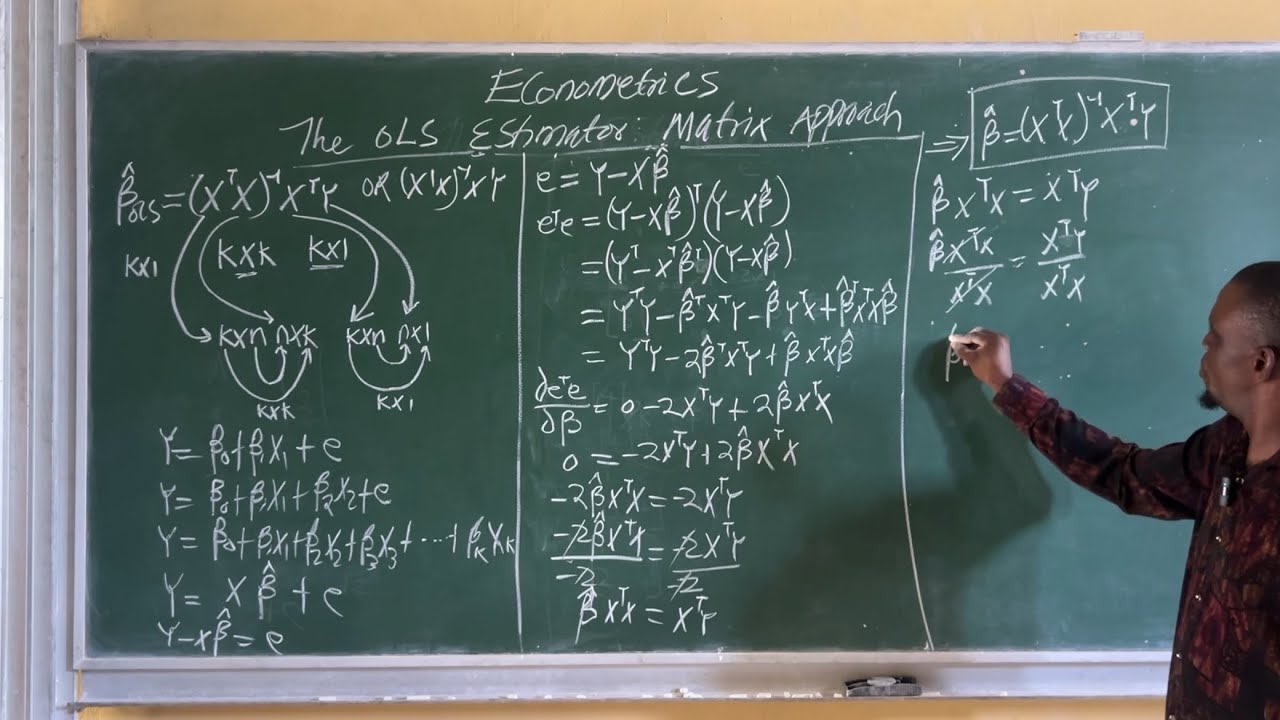 Econometrics
The OLS Estmator: Matrix Approach
β̂ols = (XᵀX)⁻¹XᵀY OR (X'X)⁻¹X'Y
KxK Kx1
Kx1
Kxn nxK Kxn nx1
KxK Kx1
Y = β₀+βX₁ + e
Y = β₀+β₁X₁+β₂X₂+e
Y = β₀+β₁X₁+β₂X₂+β₃X₃+····+βₖXₖ
Y = Xβ̂ + e
Y-Xβ̂ = e
e = Y-Xβ̂
eᵀe = (Y-Xβ̂)ᵀ(Y-Xβ̂)
= (Yᵀ-Xᵀβ̂ᵀ)(Y-Xβ̂)
= YᵀY-β̂ᵀXᵀY-β̂YᵀX+β̂ᵀXᵀXβ̂
= YᵀY-2β̂ᵀXᵀY+β̂XᵀXβ̂
∂eᵀe/∂β = 0-2XᵀY+2β̂XᵀX
0 = -2XᵀY+2β̂XᵀX
-2β̂XᵀX = -2XᵀY
-2β̂XᵀX/-2 = -2XᵀY/-2
β̂XᵀX = XᵀY
⇒ β̂=(XᵀX)⁻¹XᵀY
β̂XᵀX = XᵀY
β̂XᵀX/XᵀX = XᵀY/XᵀX
β